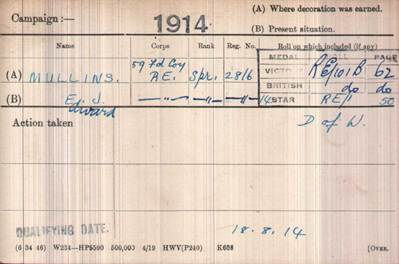 Campaign :— 1914 (A) Where decoration was earned.
(B) Present situation.
Name Corps Rank Reg. No. Roll on which included (if any)
MEDAL ROLL PAGE
(A) MULLINS. 59 Fd Coy R.E. Spr. 2816 VICTO RE/101 B 62
BRITISH do do
(B) E. J. —"— —"— —"— 14 STAR RE/1 50
Edward
Action taken D of W.
QUALIFYING DATE. 18.8.14
(6 34 46) W234—HP5590 500,000 4/19 HWV(P240) K608 (Over.